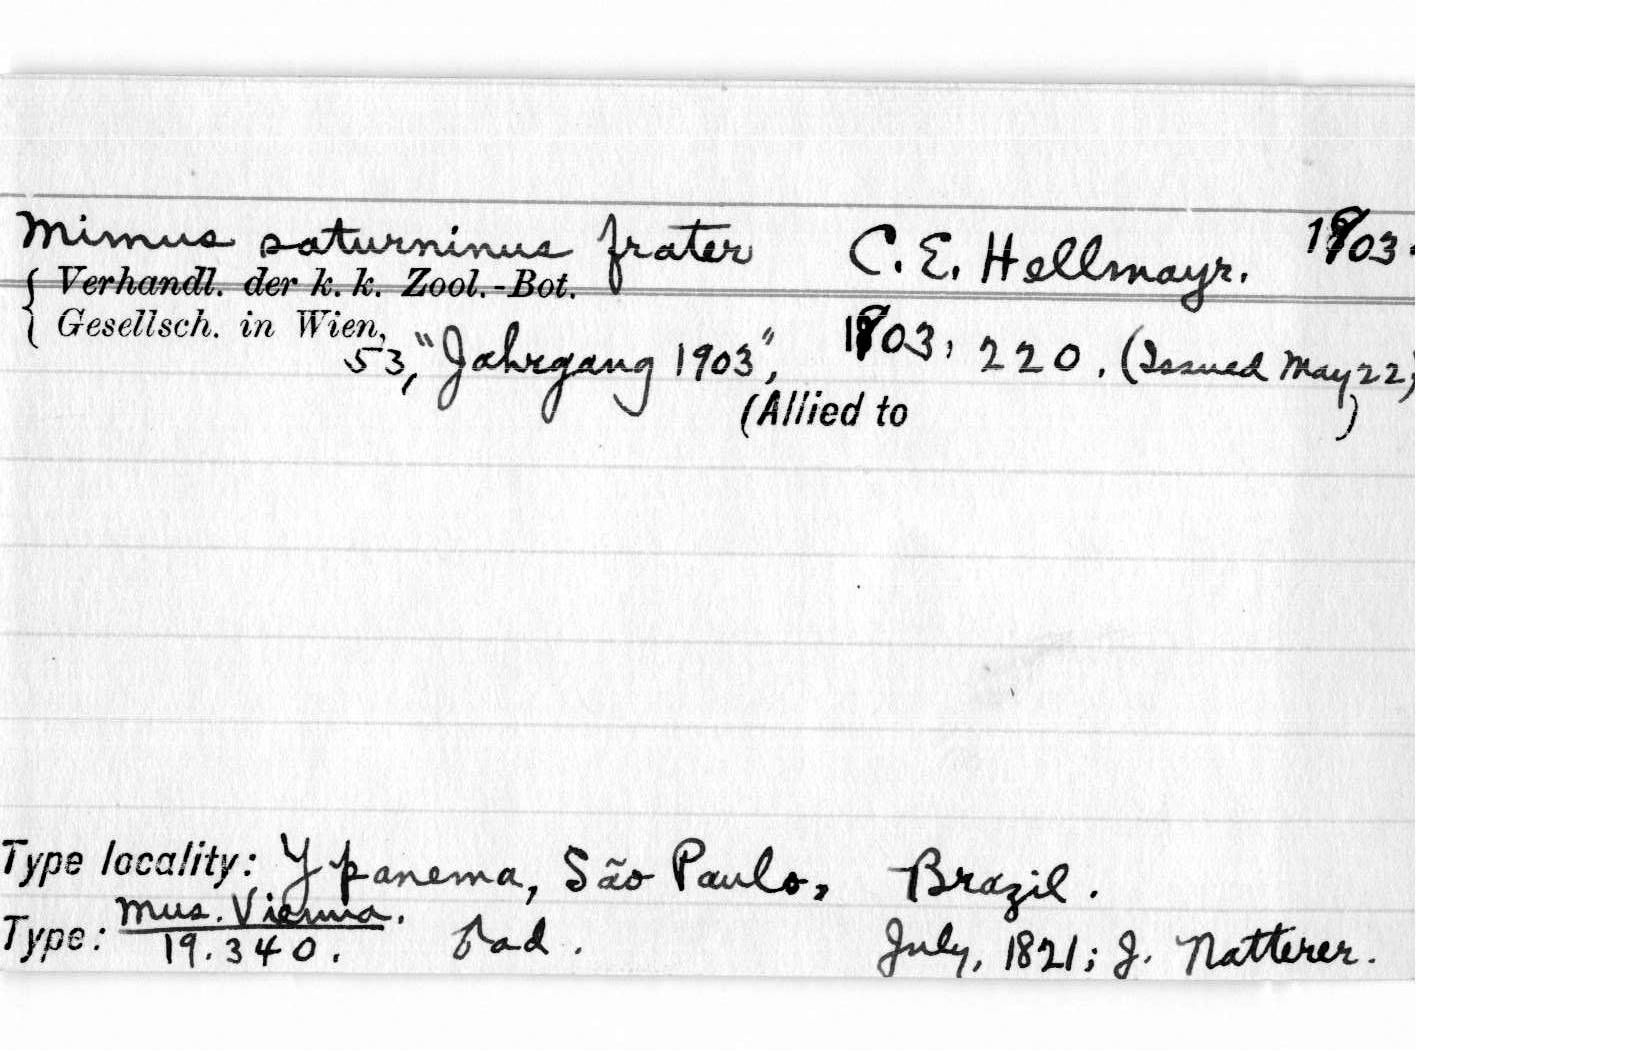 Mimus saturninus frater C. E. Hellmayr. 1903.
Verhandl. der k. k. Zool.-Bot.
Gesellsch. in Wien,
53, "Jahrgang 1903", 1903, 220. (Issued May 22)
(Allied to )
Type locality: Ypanema, São Paulo, Brazil.
Type: Mus. Vienna. 19.340. ad. July, 1821; J. Natterer.